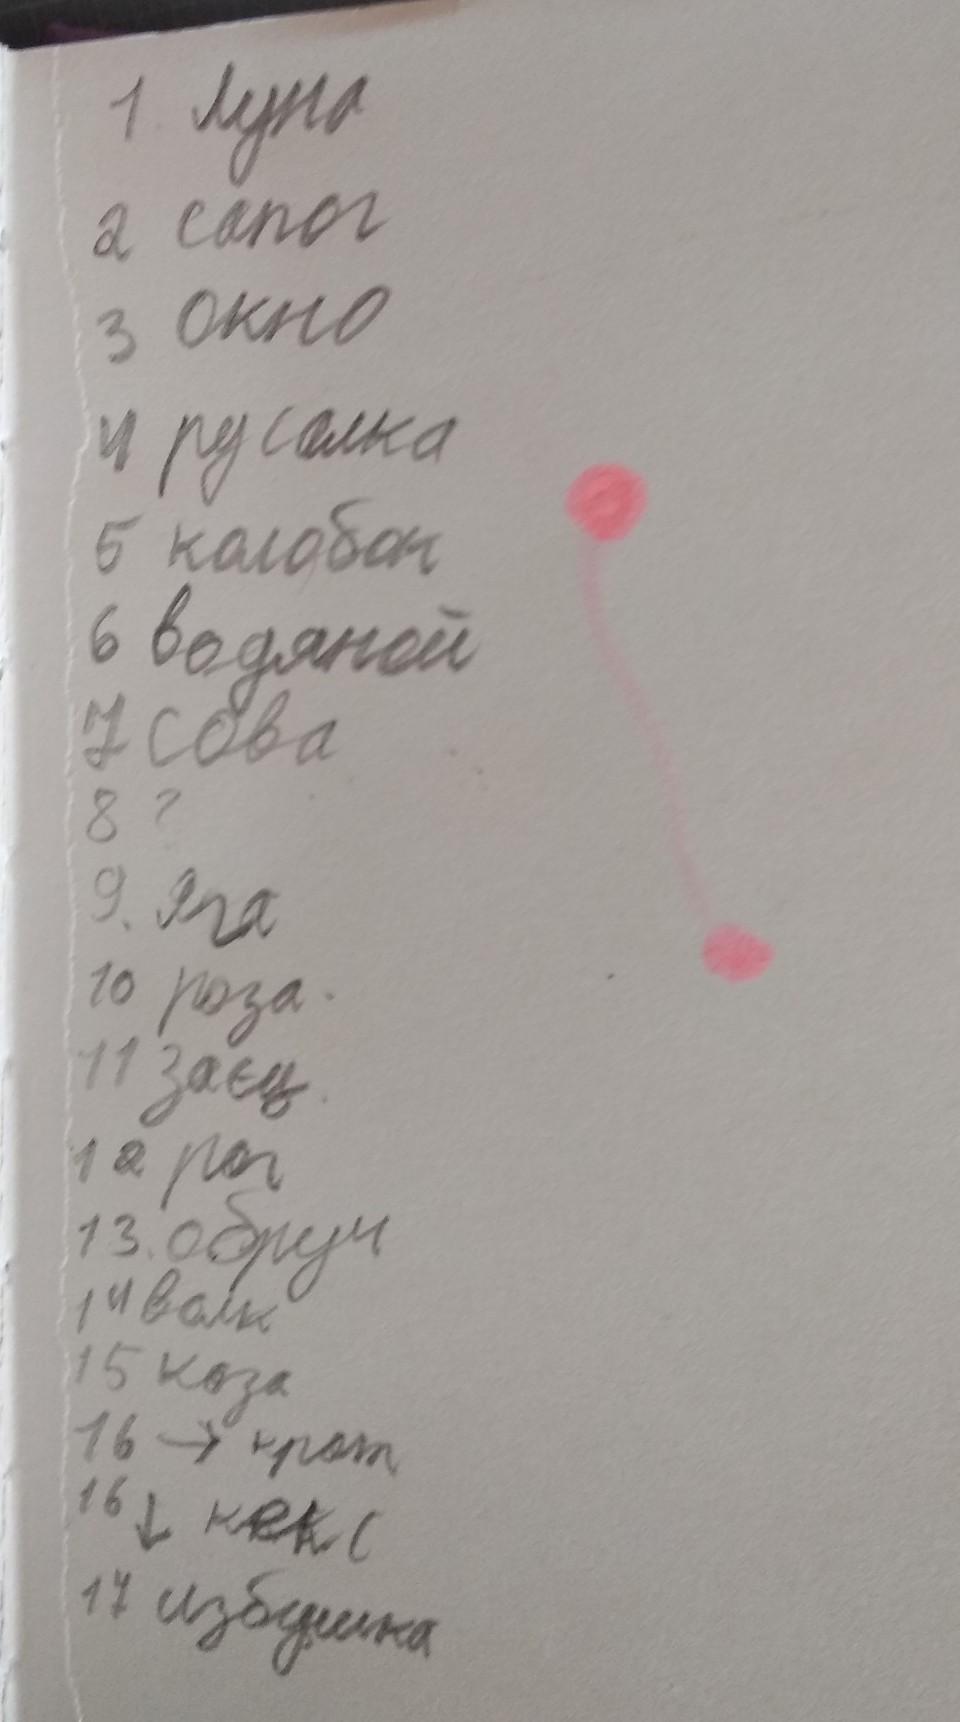 1. Луна
2 сапог
3 окно
4 русалка
5 колобок
6 водяной
7 сова
8 ?
9. Яга
10 роза.
11 заец.
12 рог
13. обруч
14 волк
15 коза
16 → крот
16 ↓ кекс
17 избушка